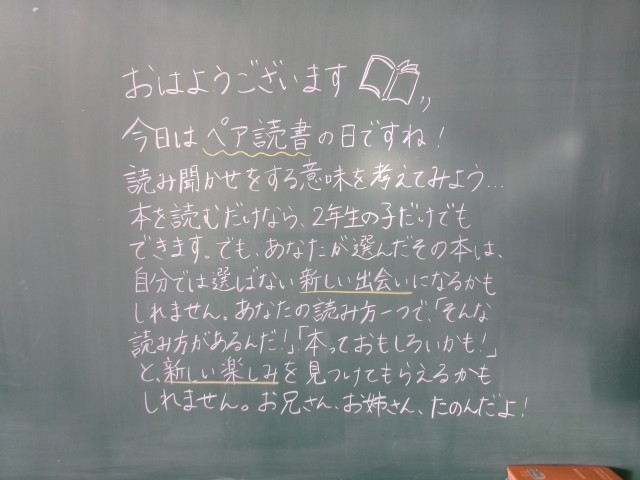 おはようございます
今日はペア読書の日ですね!
読み聞かせをする意味を考えてみよう…
本を読むだけなら、2年生の子だけでも
できます。でも、あなたが選んだその本は、
自分では選ばない新しい出会いになるかも
しれません。あなたの読み方一つで、「そんな
読み方があるんだ!」、「本っておもしろいかも!」
と、新しい楽しみを見つけてもらえるかも
しれません。お兄さん、お姉さん、たのんだよ!